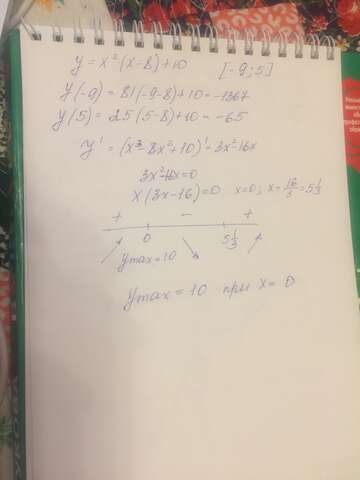 y = x²(x-8)+10 [-9;5]
y(-9) = 81(-9-8)+10 = -1367
y(5) = 25(5-8)+10 = -65
y' = (x³-8x²+10)' = 3x²-16x
3x²-16x=0
x(3x-16)=0 x=0; x=16/3=5 1/3
+ - +
0 5 1/3
ymax=10
ymax = 10 при x = 0